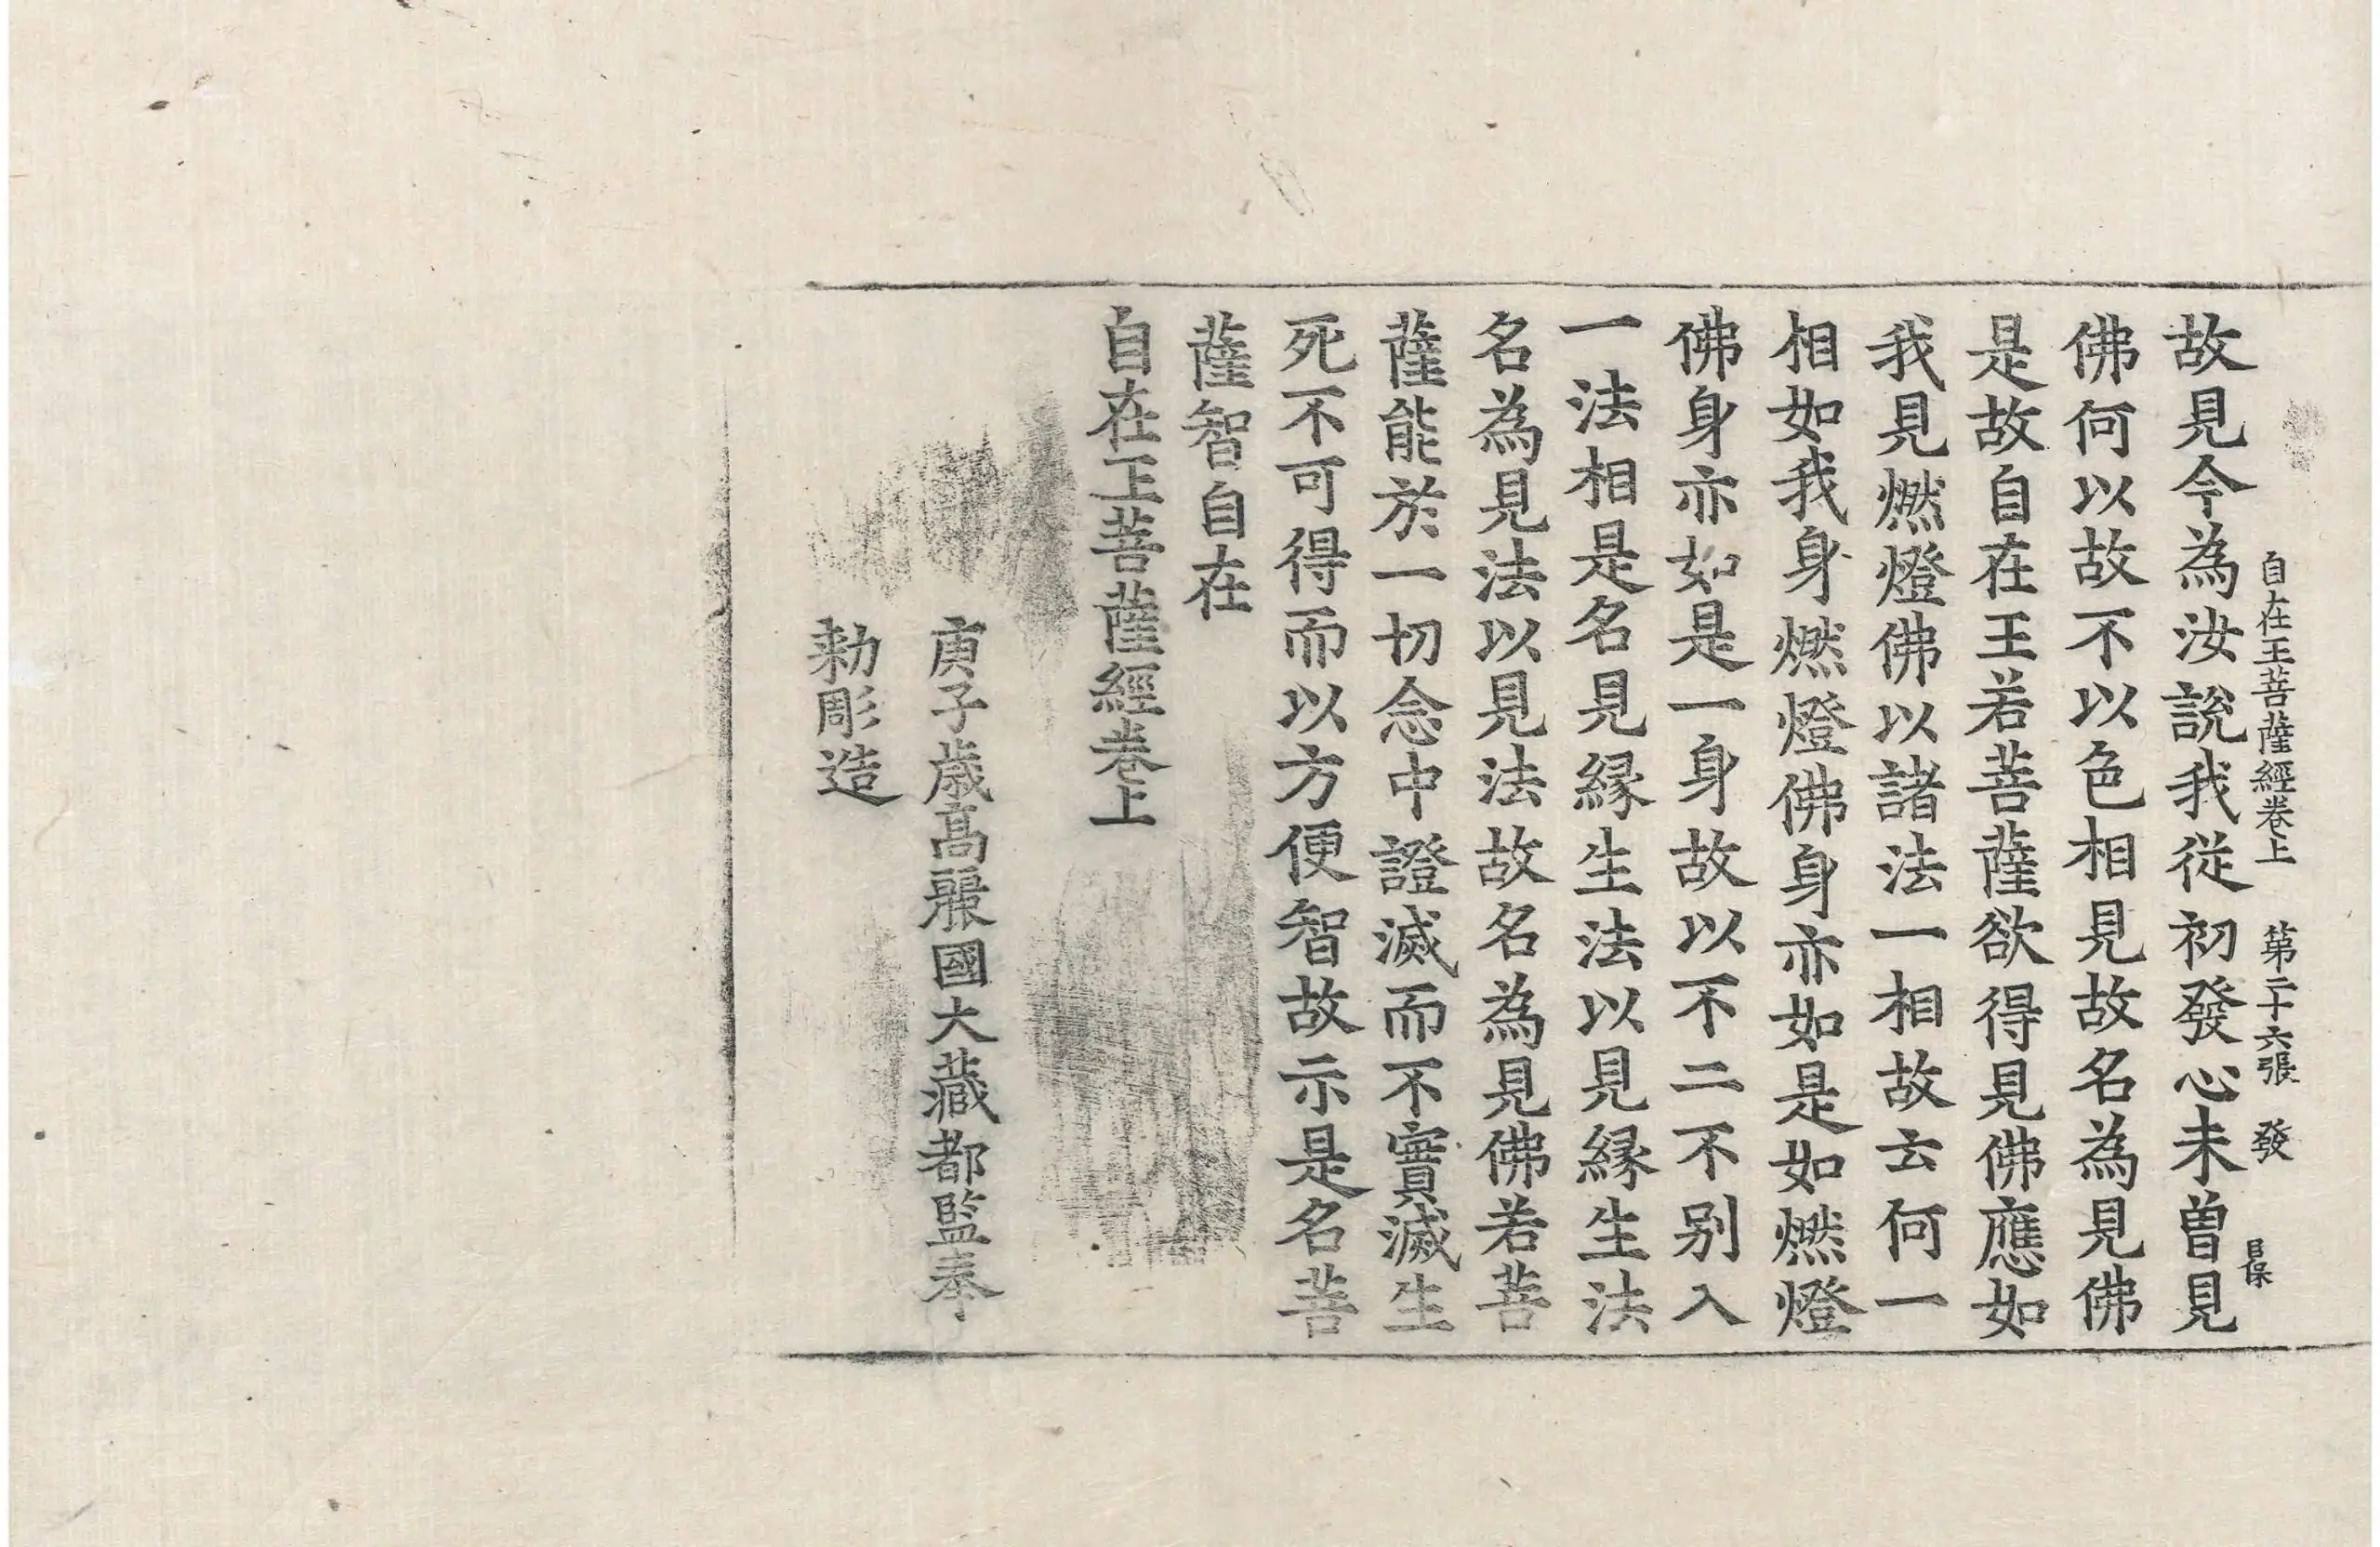 自在王菩薩經卷上　第二十六張　發
故見今為汝說我從初發心未曽見
佛何以故不以色相見故名為見佛
是故自在王若菩薩欲得見佛應如
我見燃燈佛以諸法一相故云何一
相如我身燃燈佛身亦如是如燃燈
佛身亦如是一身故以不二不別入
一法相是名見縁生法以見縁生法
名為見法以見法故名為見佛若菩
薩能於一切念中證滅而不實滅生
死不可得而以方便智故示是名菩
薩智自在
自在王菩薩經卷上
庚子歲高麗國大藏都監奉
勑彫造